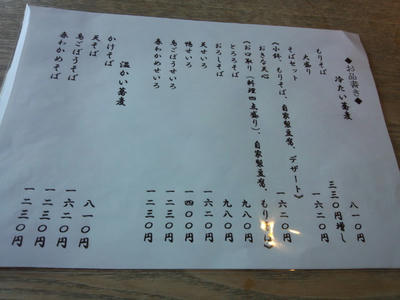 ◆お品書き◆
冷たい蕎麦
もりそば 八一〇円
大盛り 三三〇円増し
そばセット 一六二〇円
《小鉢、もりそば、自家製豆腐、デザート》
おきな点心
《お口取り(料理四点盛り)、自家製豆腐、もりそば》
とろろそば 九八〇円
おろしそば 九八〇円
天せいろ 一六二〇円
鴨せいろ 一四〇〇円
鳥ごぼうせいろ 一二三〇円
春わかめせいろ 一二三〇円
温かい蕎麦
かけそば 八一〇円
天そば 一六二〇円
鳥ごぼうそば 一二三〇円
春わかめそば 一二三〇円